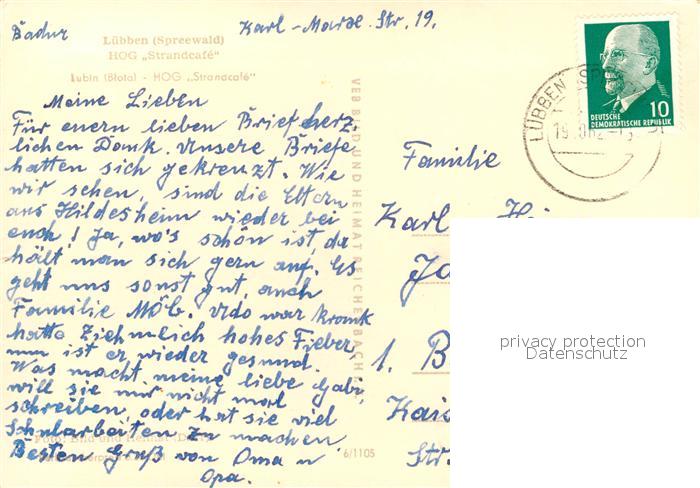 Badur Karl-Marx Str. 19.
Lübben (Spreewald)
HOG „Strandcafé“
Lubin (Błota) - HOG „Strandcafé“
Meine Lieben
Für euern lieben Brief herz-
lichen Dank. Unsere Briefe
hatten sich gekreuzt. Wie
wir sehen, sind die Eltern
aus Hildesheim wieder bei
euch! Ja, wo's schön ist, da
hält man sich gern auf. Es
geht uns sonst gut, auch
Familie Möb. Udo war krank
hatte ziehmlich hohes Fieber,
nun ist er wieder gesund.
Was macht meine liebe Gabi,
will sie mir nicht mal
schreiben, oder hat sie viel
Schularbeiten zu machen
Besten Gruß von Oma u
Opa.
Foto: Bild und Heimat
6/1105
VEB BILD UND HEIMAT REICHENBACH
DEUTSCHE
DEMOKRATISCHE REPUBLIK
10
LÜBBEN
Familie
Karl
1. B
Str.
privacy protection
Datenschutz